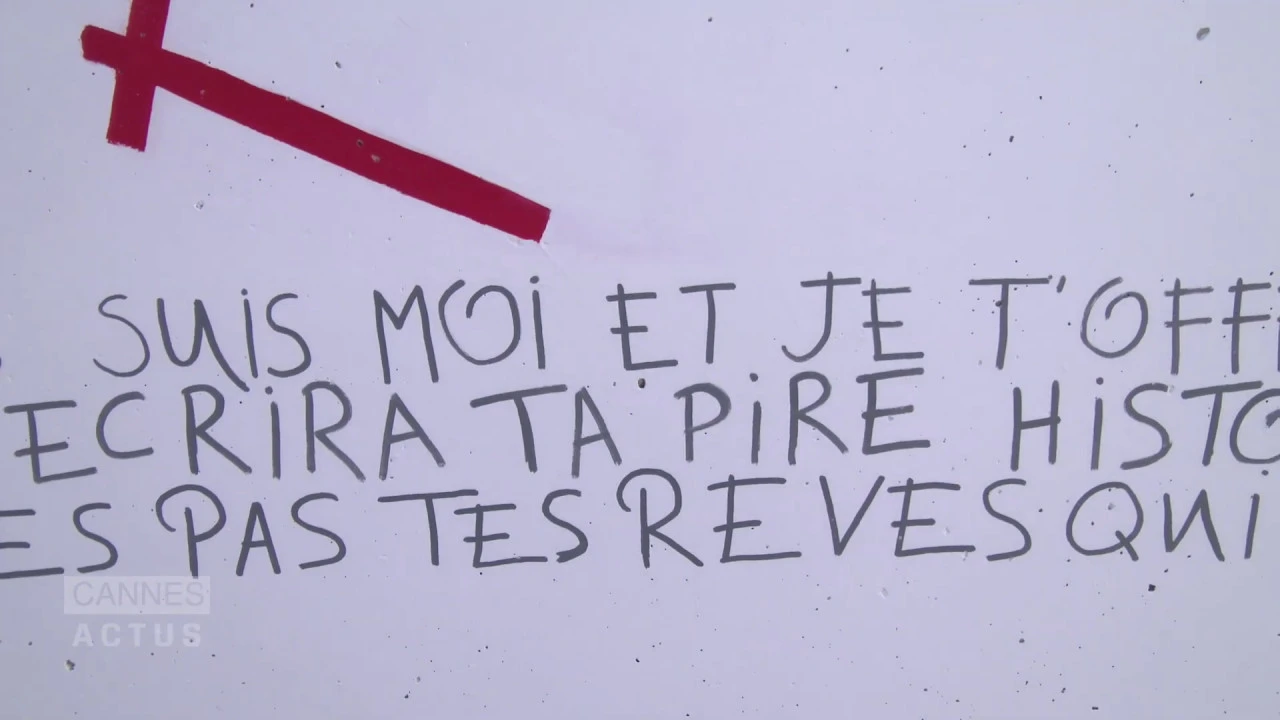 SUIS MOI ET JE T'OFF
ECRIRA TA PIRE HISTO
ES PAS TES REVES QUI
CANNES
ACTUS